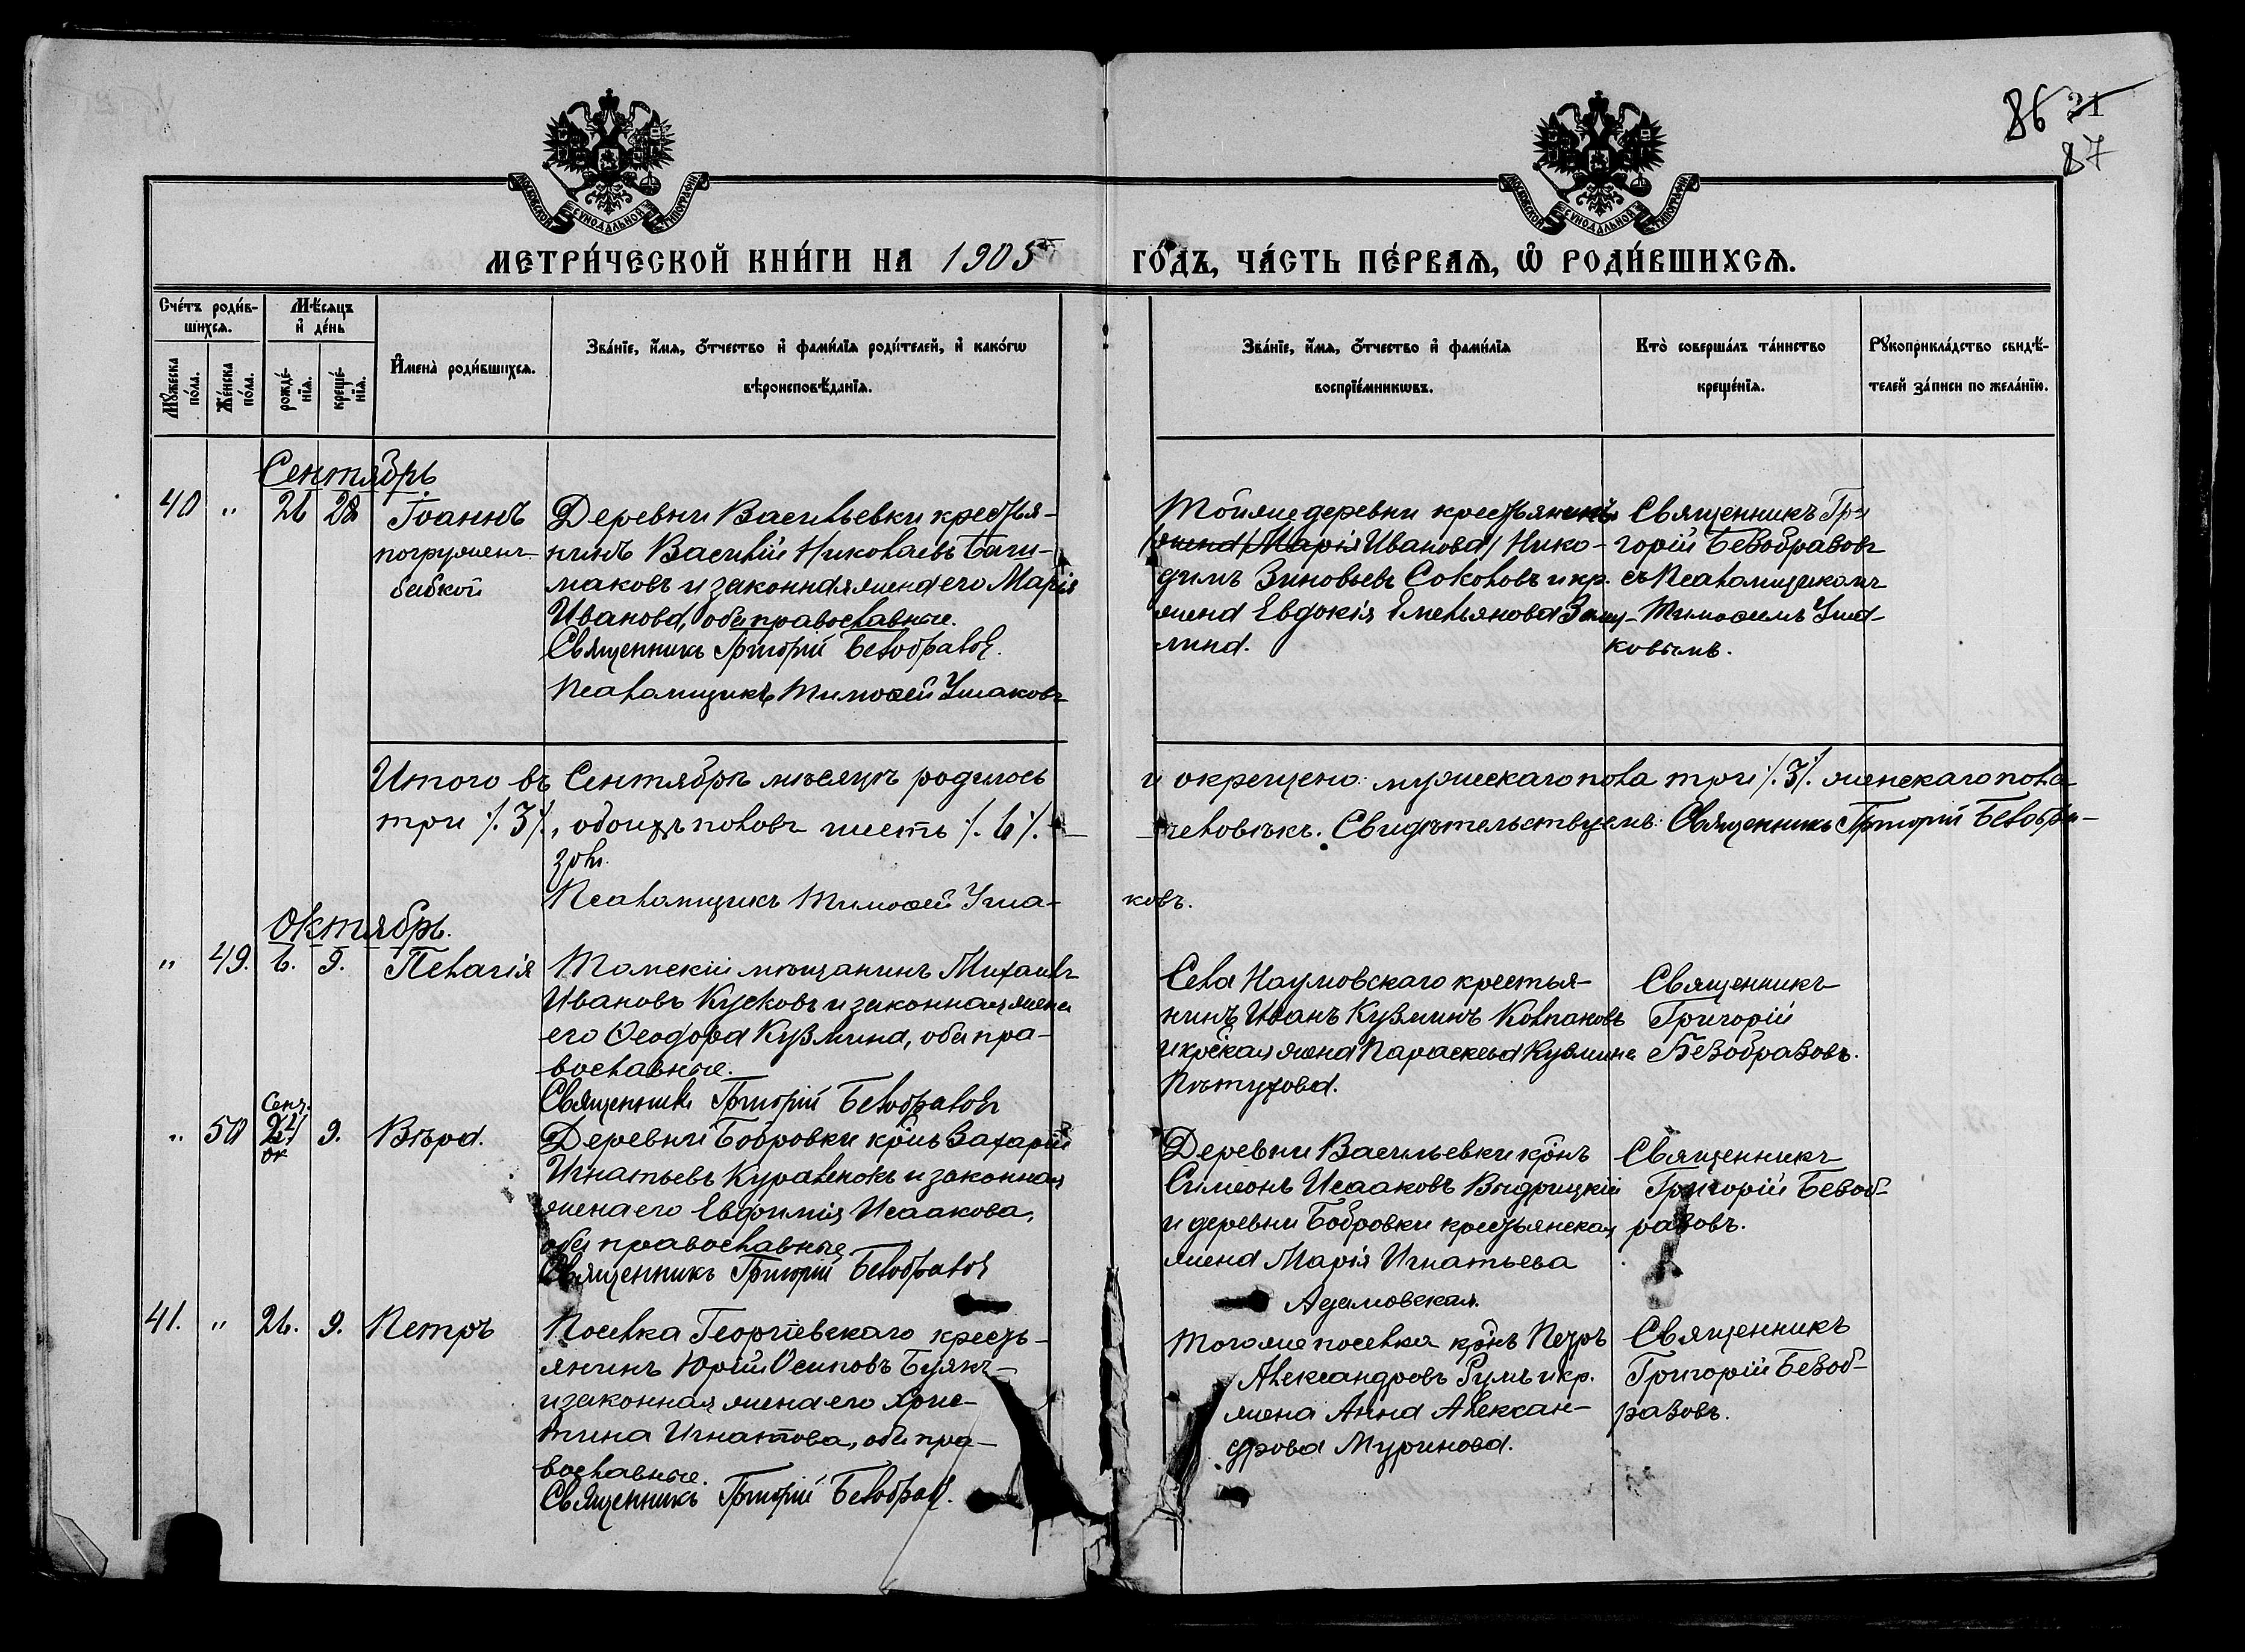 86 31
87
МОСКОВСКОЙ СУНОДАЛЬНОЙ ТИПОГРАФІИ
МОСКОВСКОЙ СУНОДАЛЬНОЙ ТИПОГРАФІИ
МЕТРИ́ЧЕСКОЙ КНИ́ГИ НА 1905
ГО́ДЪ, ЧА́СТЬ ПЕ́РВАѦ, Ѽ РОДИ́ВШИХСѦ.
Сче́тъ роди́в-
шихсѧ.
Мѣ́сѧцъ
и҆ де́нь
Мꙋ́жеска по́ла.
Же́нска по́ла.
рожде́-
нїѧ.
креще́-
нїѧ.
И҆мена̀ роди́вшихсѧ.
Зва́нїе, и҆́мѧ, ѻ҆́тчество и҆ фами́лїѧ роди́телей, и҆ како́гѡ
вѣроисповѣ́данїѧ.
Зва́нїе, и҆́мѧ, ѻ҆́тчество и҆ фами́лїѧ
воспрїе́мникѡвъ.
Кто̀ соверша́лъ та́инство
креще́нїѧ.
Рꙋкоприкла́дство свидѣ́-
телей за́писи по жела́нїю.
Сентябрь
40 " 26 28 Іоаннъ
погружен.
бабкой
Деревни Васильевки крестья-
нинъ Василій Николаевъ
маковъ и законная жена его Марія
Иванова, оба православные.
Священникъ Григорій Безобразов.
Псаломщикъ Тимоѳей Ушаковъ
Тойже деревни крестьянинъ
жена Марія Иванова Нико-
димъ Зиновьевъ Соколовъ и кр.
жена Евдокія Емельянова
мина.
Священникъ Гри
горій Безобразовъ
съ Псаломщикомъ
Тимоѳеемъ Уша-
ковымъ.
Итого въ Сентябрѣ мѣсяцѣ родилось
и окрещено: мужескаго пола три /.3/. женскаго пола
три /.3/., обоихъ половъ шесть /.6/.
человѣкъ. Свидѣтельствуемъ: Священникъ Григорій Безобра-
зовъ.
Псаломщикъ Тимоѳей Уша-
ковъ.
Октябрь.
" 49. 6. 9. Пелагія
Томскій мѣщанинъ Михаилъ
Ивановъ Кусковъ и законная жена
его Ѳеодора Кузмина, оба пра-
вославные.
Священникъ Григорій Безобразовъ
Села Наумовскаго крестья-
нинъ Иванъ Кузминъ Колпаковъ
и кр̃ская жена Параскева Кузмина
Пѣтухова.
Священникъ
Григорій
Безобразовъ.
Сент.
" 50 27 9. Вѣра.
ок
Деревни Бобровки кр̃нъ Захарій
Игнатьевъ Кураленокъ и законная
жена его Евфимія Исаакова,
оба православные
Священникъ Григорій Безобразов
Деревни Васильевки кр̃нъ
Симеонъ Исааковъ Выдрицкій
и деревни Бобровки крестьянская
жена Марія Игнатьева
Адамовская.
Священникъ
Григорій Безоб-
разовъ.
41. " 26. 9. Петръ
Поселка Георгіевскаго кресть-
янинъ Юрій Осиповъ Буякъ
и законная жена его Хрис-
тина Игнатова, оба пра-
вославные.
Священникъ Григорій Безобраз.
Тогоже поселка кр̃нъ Петръ
Александровъ Румъ и кр.
жена Анна Алексан-
дрова Муринова.
Священникъ
Григорій Безоб-
разовъ.